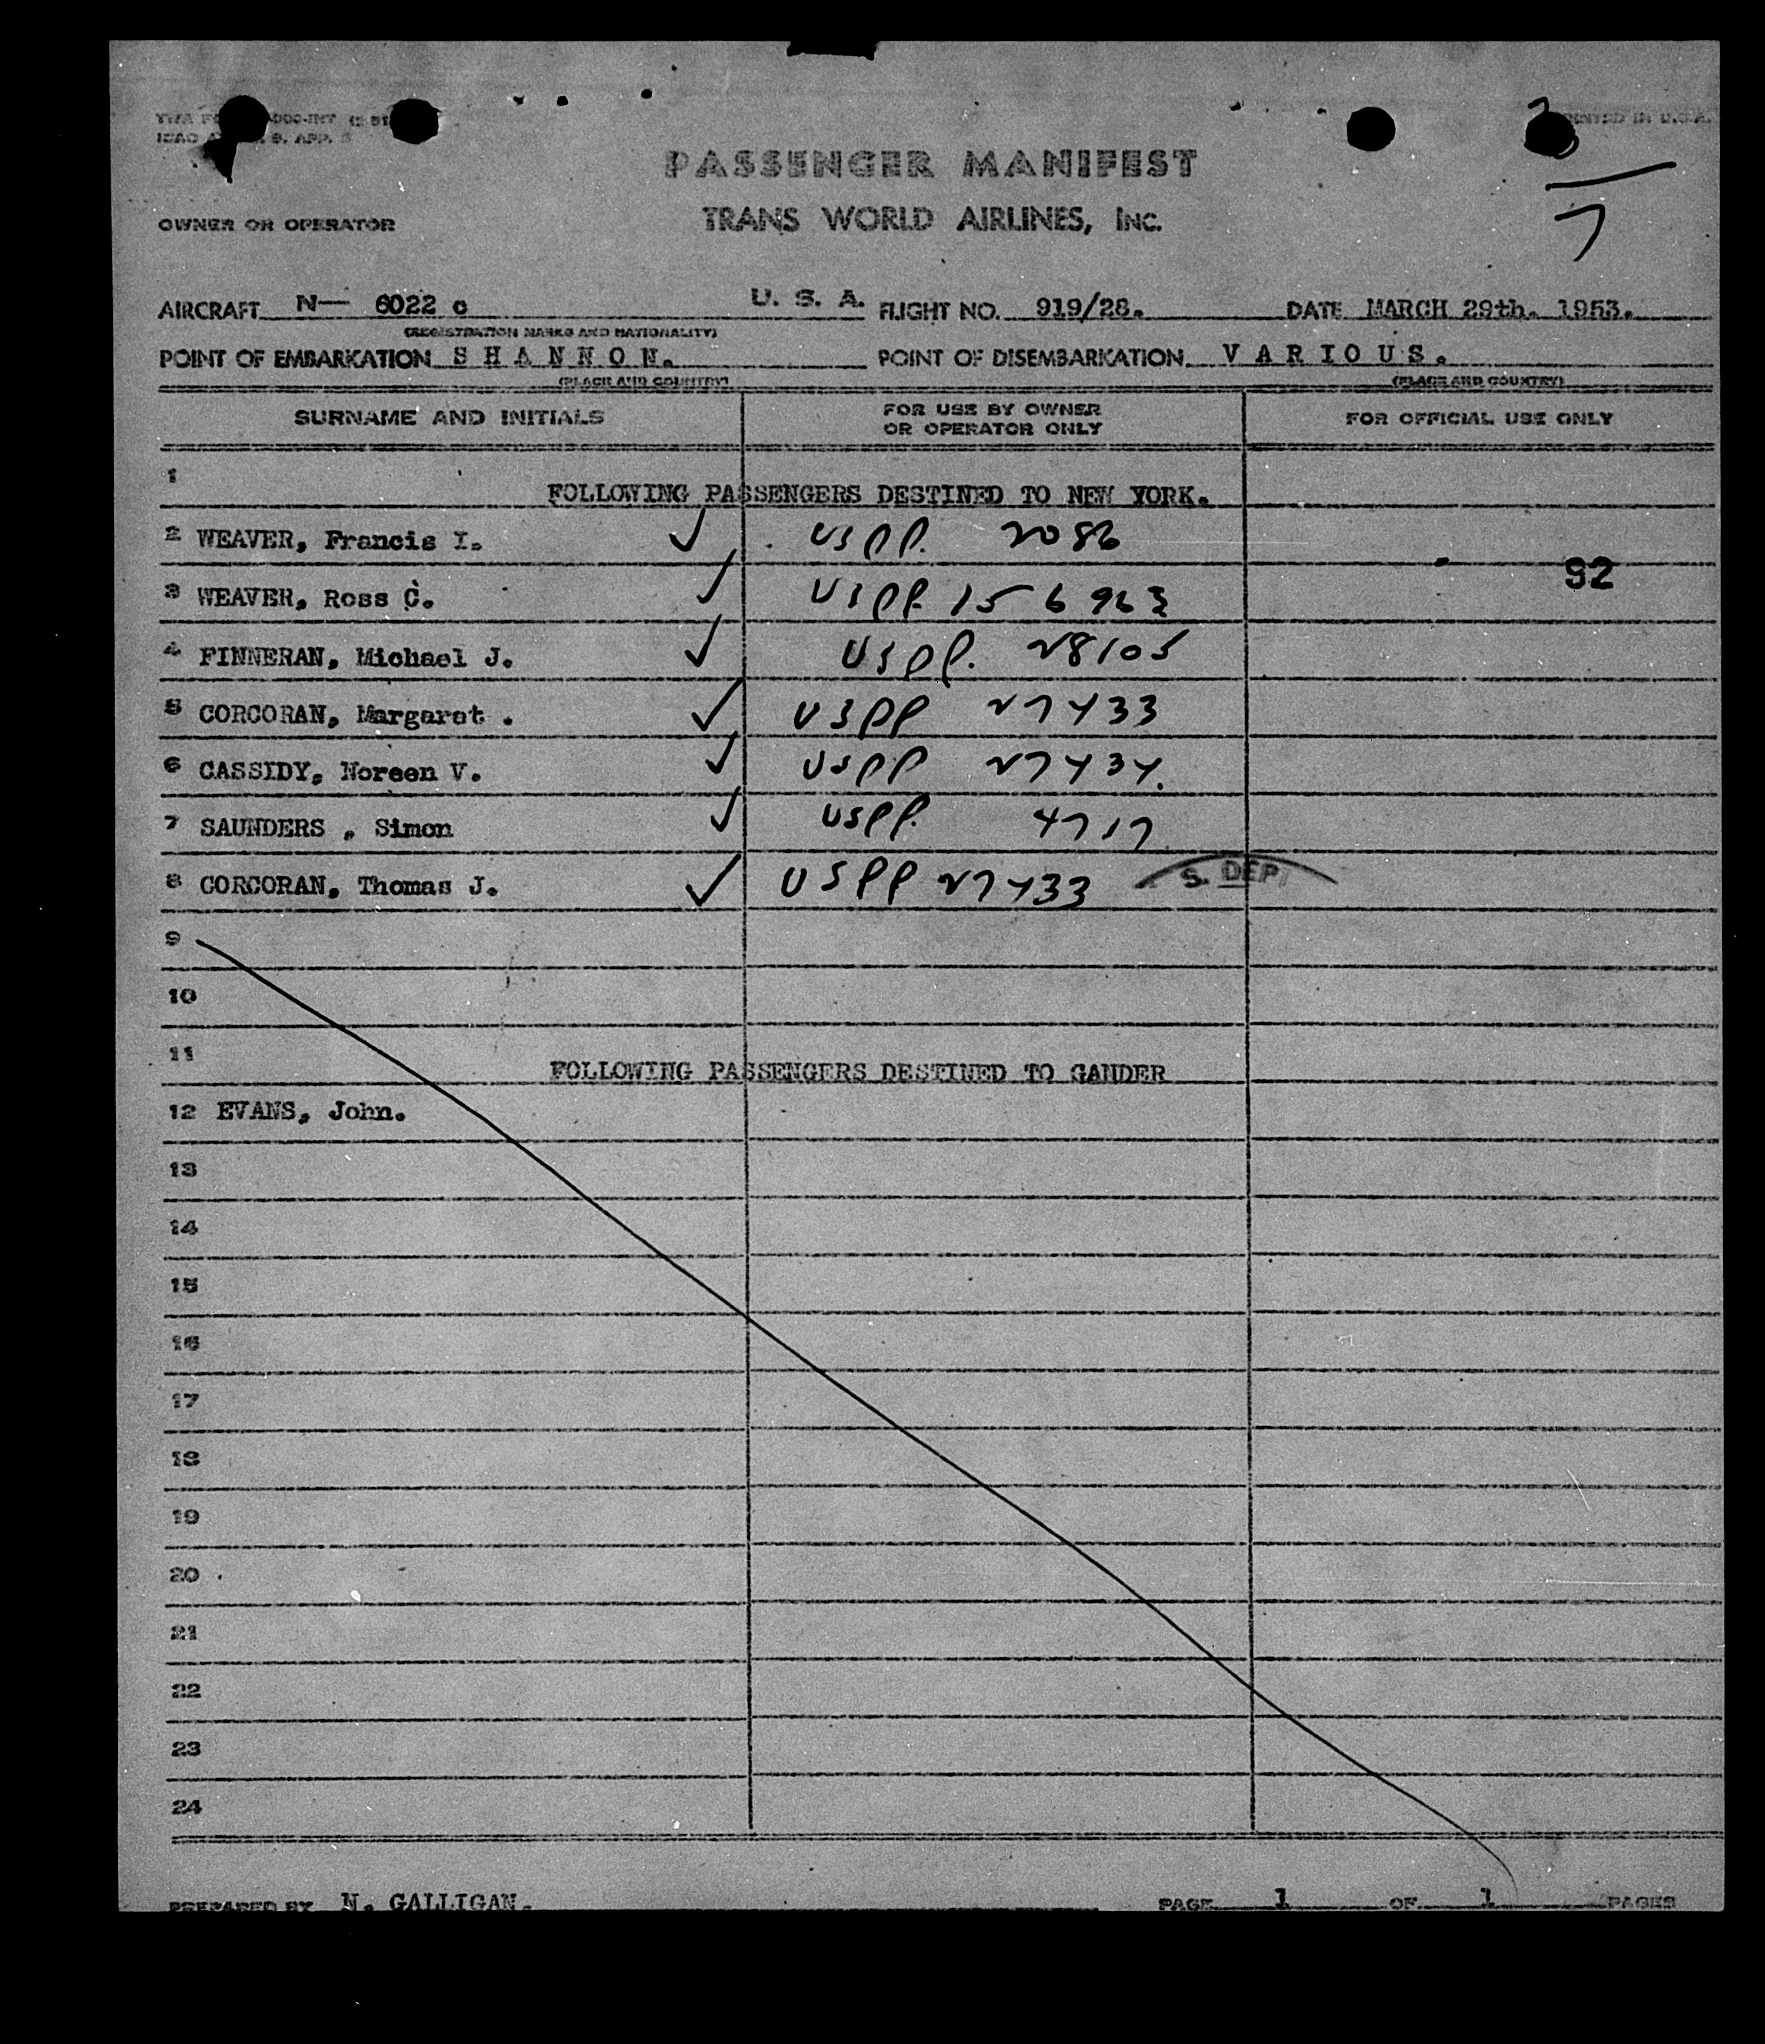 PRINTED IN U.S.A.
PASSENGER MANIFEST
OWNER OR OPERATOR TRANS WORLD AIRLINES, INC.
7
AIRCRAFT N— 6022 c U. S. A. FLIGHT NO. 919/28. DATE MARCH 29th. 1953.
(REGISTRATION MARKS AND NATIONALITY)
POINT OF EMBARKATION S H A N N O N. POINT OF DISEMBARKATION V A R I O U S.
(PLACE AND COUNTRY) (PLACE AND COUNTRY)
SURNAME AND INITIALS FOR USE BY OWNER OR OPERATOR ONLY FOR OFFICIAL USE ONLY
1 FOLLOWING PASSENGERS DESTINED TO NEW YORK.
2 WEAVER, Francis I. ✓ USPP. 2086
92
3 WEAVER, Ross C. ✓ USPP. 156963
4 FINNERAN, Michael J. ✓ USPP. 28105
5 CORCORAN, Margaret . ✓ USPP 27433
6 CASSIDY, Noreen V. ✓ USPP 27434.
7 SAUNDERS , Simon ✓ USPP. 4717
8 CORCORAN, Thomas J. ✓ USPP 27433 S. DEPT
9
10
11 FOLLOWING PASSENGERS DESTINED TO GANDER
12 EVANS, John.
13
14
15
16
17
18
19
20
21
22
23
24
PREPARED BY N. GALLIGAN. PAGE 1 OF 1 PAGES